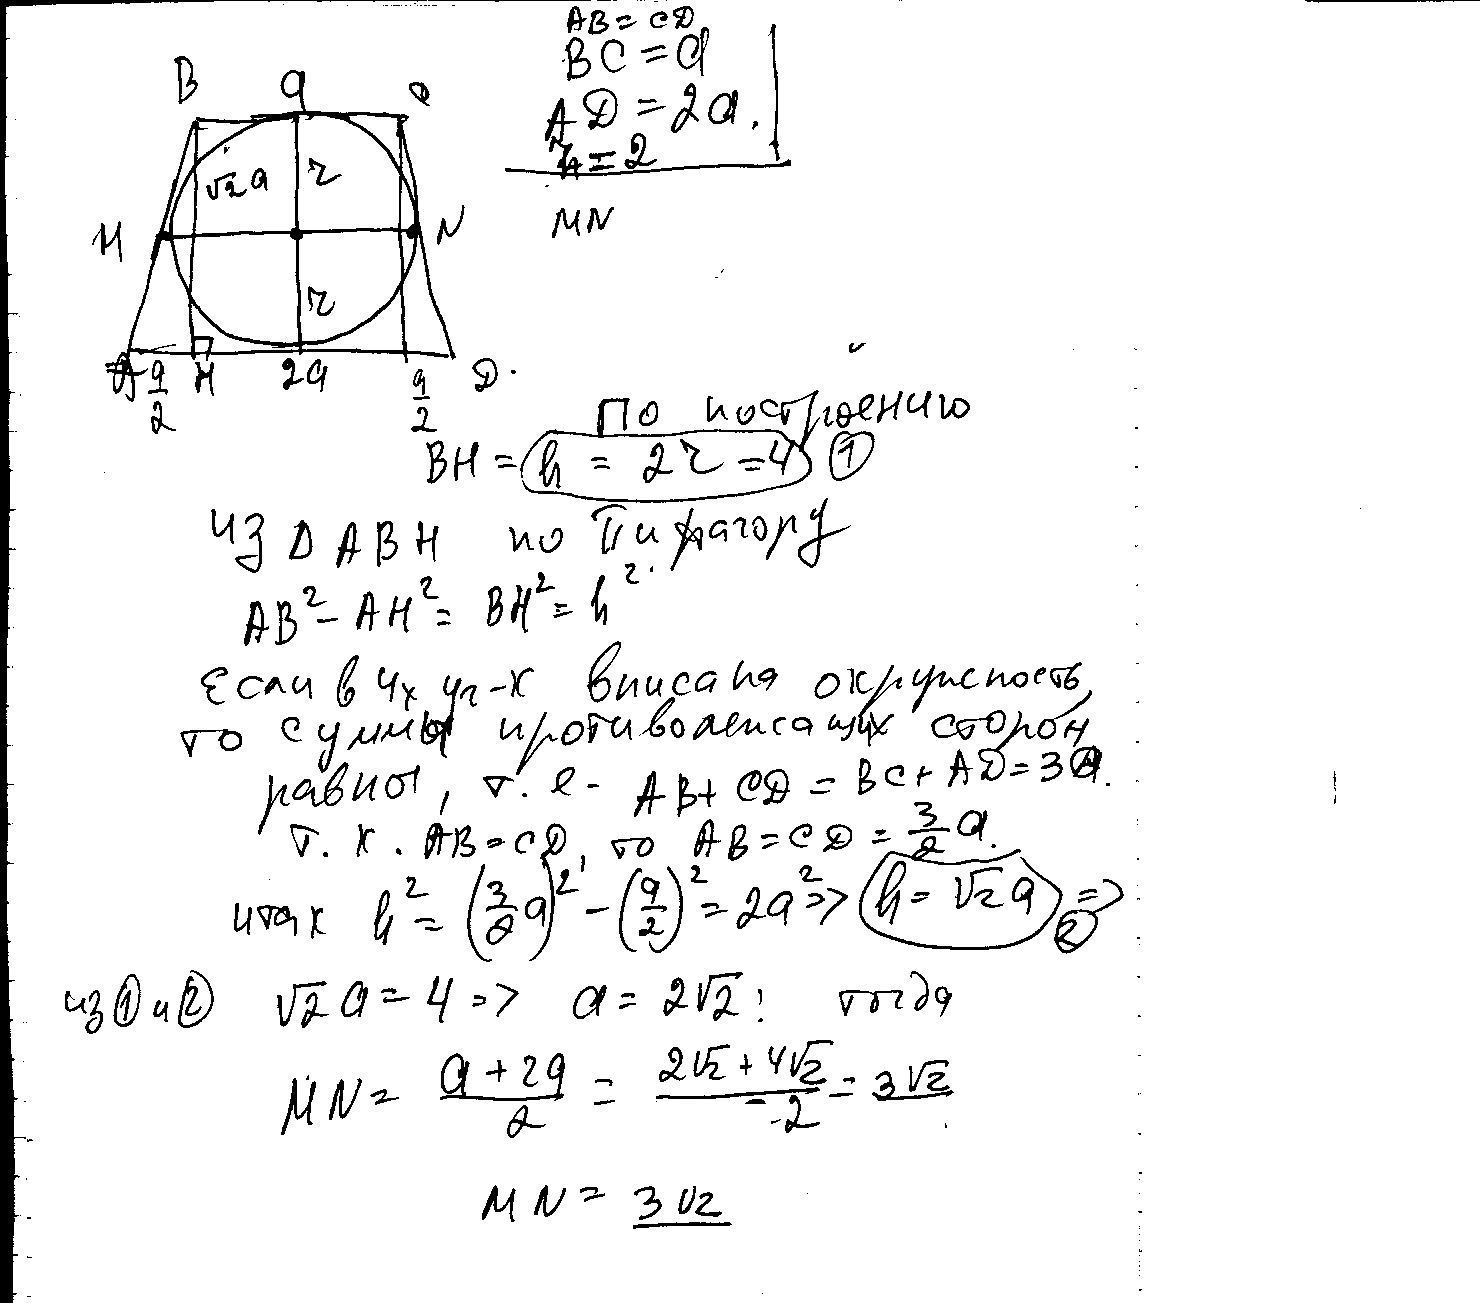 AB = CD
BC = a
AD = 2a.
r = 2
MN
B a
√2 a r
M N
r
A a/2 H 2a a/2 D.
По построению
BH = h = 2r = 4 ①
из Δ ABH по Пифагору
AB² - AH² = BH² = h².
Если в 4х уг-к вписана окружность,
то суммы противолежащих сторон
равны, т. е. AB + CD = BC + AD = 3a.
т. к. AB = CD, то AB = CD = 3/2 a.
итак h² = (3/2 a)² - (a/2)² = 2a² => h = √2 a => ②
из ① и ② √2 a = 4 => a = 2√2! тогда
MN = (a + 2a)/2 = (2√2 + 4√2)/2 = 3√2
MN = 3√2